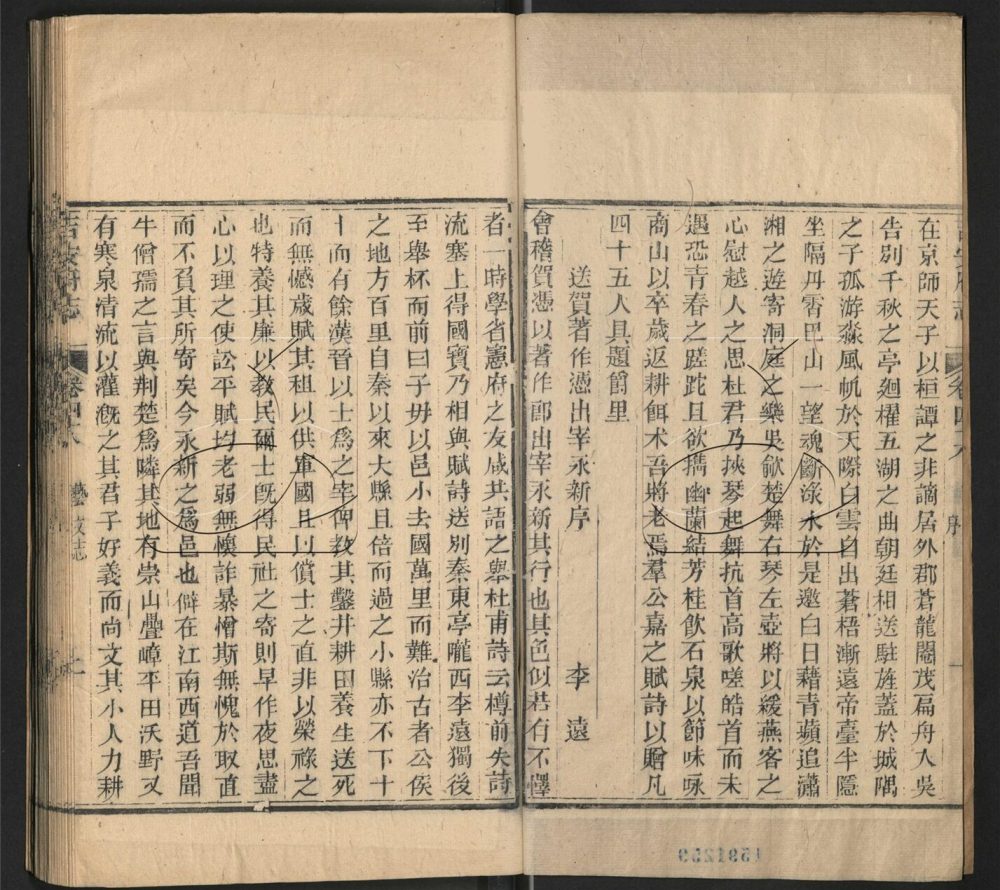 在京師天子以桓譚之非謫居外郡蒼龍閹茂扁舟入吳
告別千秋之亭廻櫂五湖之曲朝廷相送駐旌蓋於城隅
之子孤游淼風帆於天際白雲自出蒼梧漸遠帝臺半隱
坐隔丹霄巴山一望魂斷淥水於是邀白日藉青蘋追瀟
湘之遊寄洞庭之樂吳歈楚舞右琴左壺將以緩燕客之
心慰越人之思杜君乃挾琴起舞抗首高歌嗟皓首而未
遇恐青春之蹉跎且欲攜幽蘭結芳桂飲石泉以節味咏
商山以卒歲返耕餌术吾將老焉羣公嘉之賦詩以贈凡
四十五人具題爵里
送賀著作憑出宰永新序 李遠
會稽賀憑以著作郎出宰永新其行也其色似若有不懌
者一時學省憲府之友咸共語之舉杜甫詩云樽前失詩
流塞上得國寶乃相與賦詩送別秦東亭隴西李遠獨後
至舉杯而前曰子毋以邑小去國萬里而難治古者公侯
之地方百里自秦以來大縣且倍而過之小縣亦不下十
十而有餘漢晉以士爲之宰俾教其鑿井耕田養生送死
而無憾歲賦其租以供軍國且以償士之直非以榮祿之
也特養其廉以教民爾士旣得民社之寄則早作夜思盡
心以理之使訟平賦均老弱無懊詐暴憎斯無愧於取直
而不負其所寄矣今永新之爲邑也僻在江南西道吾聞
牛僧孺之言與荆楚爲隣其地有崇山疊嶂平田沃野又
有寒泉清流以灌漑之其君子好義而尚文其小人力耕
吉安府志
卷四十八
藝文志
序